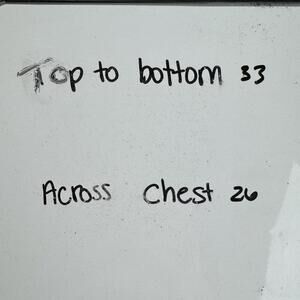 Top to bottom 33
Across Chest 26